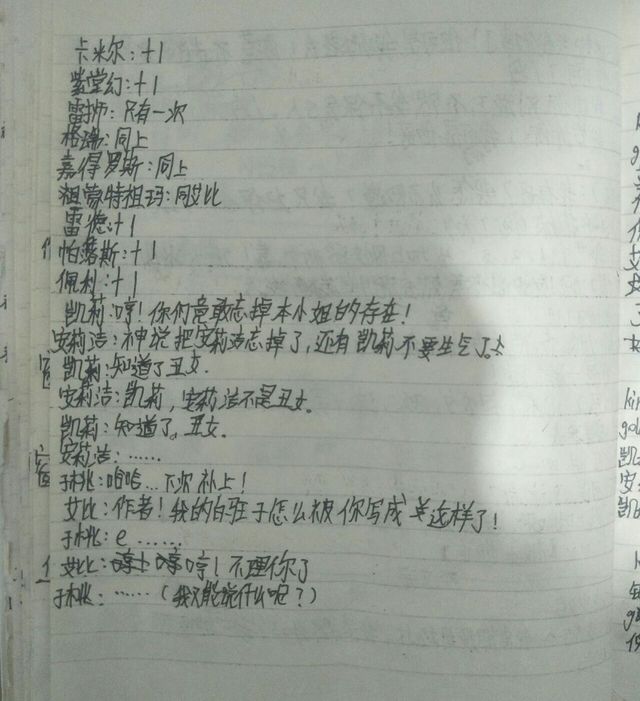 卡米尔：+1
紫堂幻：+1
雷狮：只有一次
格瑞：同上
嘉得罗斯：同上
祖蒙特祖玛：同艾比
雷德：+1
帕落斯：+1
佩利：+1
凯莉：哼！你们竟敢忘掉本小姐的存在！
安莉洁：神说把安莉洁忘掉了，还有凯莉不要生气了。
凯莉：知道了丑女.
安莉洁：凯莉，安莉洁不是丑女。
凯莉：知道了。丑女.
安莉洁：……
子桃：哈哈…下次补上！
艾比：作者！我的白班子怎么被你写成这样了！
子桃：e……
艾比：哼！不理你了
子桃：……（我只能说什么呢？）